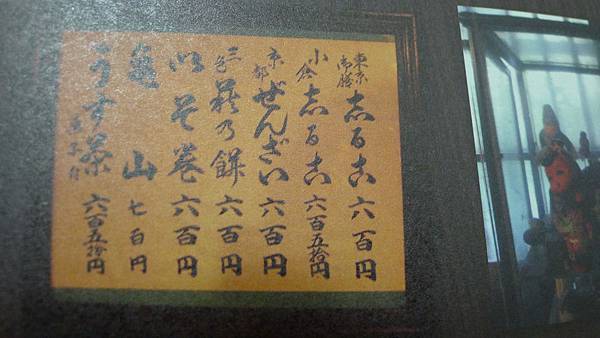 東京御膳志るこ六百円
小倉志るこ六百五拾円
京都ぜんざい六百円
三色萩乃餅六百円
以そ巻六百円
亀山七百円
うす茶菓子付六百五拾円